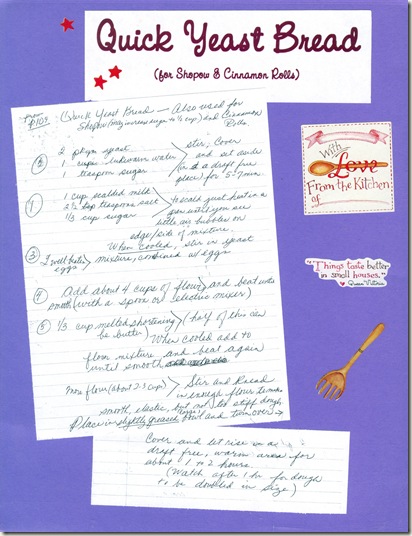 Quick Yeast Bread
(for Shopow & Cinnamon Rolls)
from
p104
Quick Yeast Bread — Also used for
Shopow (may increase sugar to ½ cup) and Cinnamon
Rolls.
② 2 pkgm yeast
1 cups lukewarm water
1 teaspoon sugar
stir, Cover
and set aside
(in a draft free
place) for 5-7 min.
① 1 cup scalded milk
2 ½ tsp teaspoons salt
1/3 cup sugar
to scald just heat in a
pan until you see
little air bubbles on
edge/side of mixture.
When cooled, stir in yeast
mixture, combined w/ eggs
③ 2 well beaten
eggs
④ Add about 4 cups of flour and beat until
smooth (with a spoon or electric mixer)
⑤ 1/3 cup melted shortening (half of this can
be butter)
When cooled add to
flour mixture and beat again
until smooth
more flour (about 2-3 cups)
Stir and Knead
in enough flour to make
smooth, elastic, but not too stiff dough.
Place in slightly greased bowl and turn over →
Cover and let rise in a
draft free, warm area for
about 1 to 2 hours.
(Watch after 1 hr for dough
to be doubled in size)
With
Love
From the Kitchen
of
"Things taste better
in small houses."
Queen Victoria